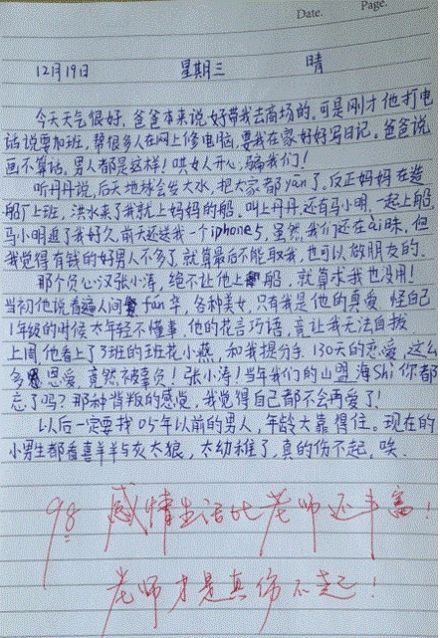 Date.
Page.
12月19日 星期三 晴
今天天气很好，爸爸本来说好带我去商场的。可是刚才他打电
话说要加班，帮很多人在网上修电脑，要我在家好好写日记。爸爸说
画不算话。男人都是这样！哄女人开心，骗我们！
听丹丹说，后天地球会发大水，把大家都yān了。反正妈妈在造
船厂上班，洪水来了我就上妈妈的船。叫上丹丹，还有马小明，一起上船，
马小明追了我好久，前天还送我一个iphone5，虽然我们还在ài昧，但
我觉得有钱的好男人不多了，就算最后不能取我，也可以做朋友的。
那个负心汉张小涛，绝不让他上船，就算求我也没用！
当初他说看遍人间fán华，各种美女，只有我是他的真爱，怪自己
1年级的时候太年轻不懂事，他的花言巧语，竟让我无法自拔
上周他看上了3班的班花小燕，和我提分手，130天的恋爱，这么
多恩爱，竟然被辜负！张小涛！当年我们的山盟海Shi，你都
忘了吗？那种背叛的感觉，我觉得自己都不会再爱了！
以后一定要找05年以前的男人，年龄大靠得住。现在的
小男生都看喜羊羊与灰太狼，太幼稚了，真的伤不起，唉。
98 感情生活比老师还丰富！
老师才是真伤不起！